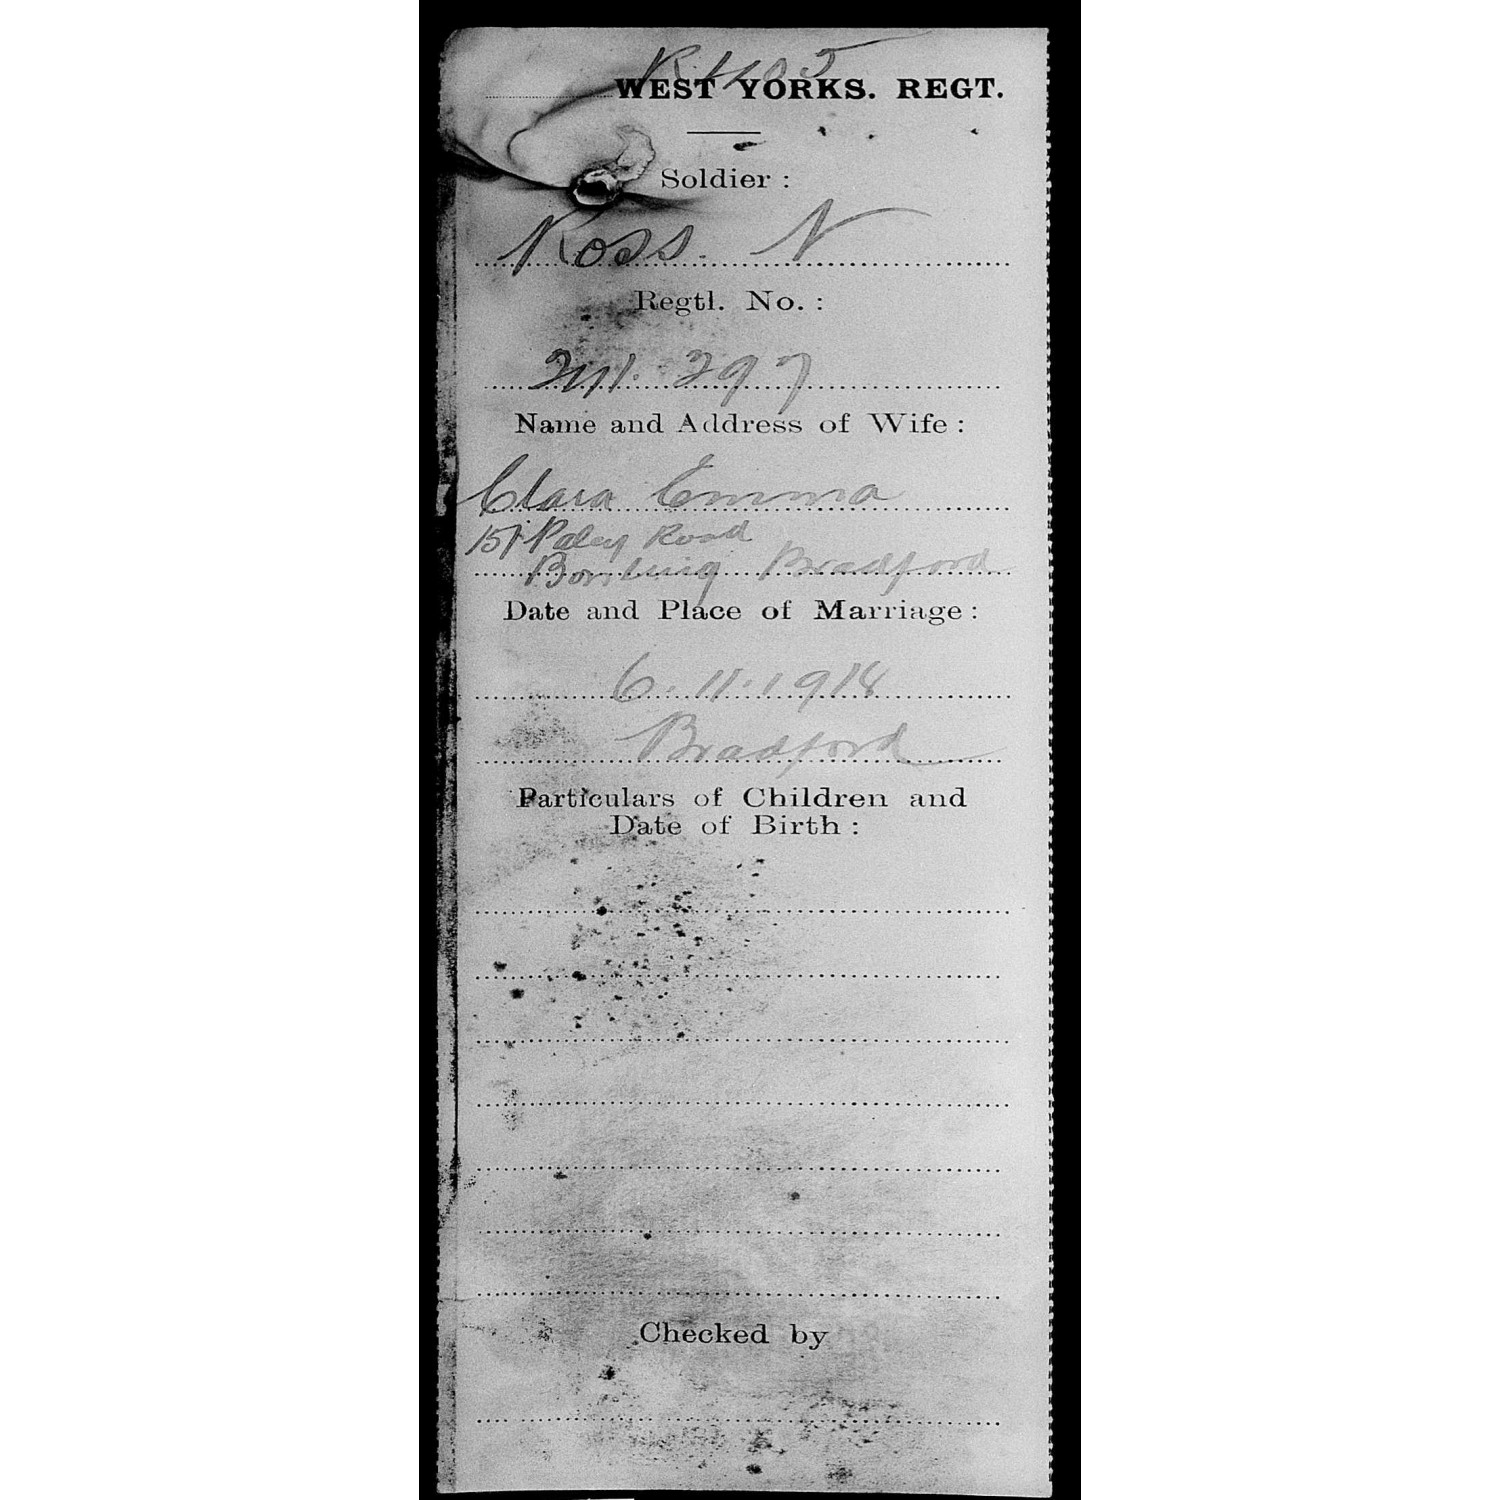 R4105
WEST YORKS. REGT.
Soldier :
Ross. N
Regtl. No. :
297
Name and Address of Wife :
Clara Emma
Paley Road
Bowling Bradford
Date and Place of Marriage :
6.11.1918
Bradford
Particulars of Children and
Date of Birth :
Checked by